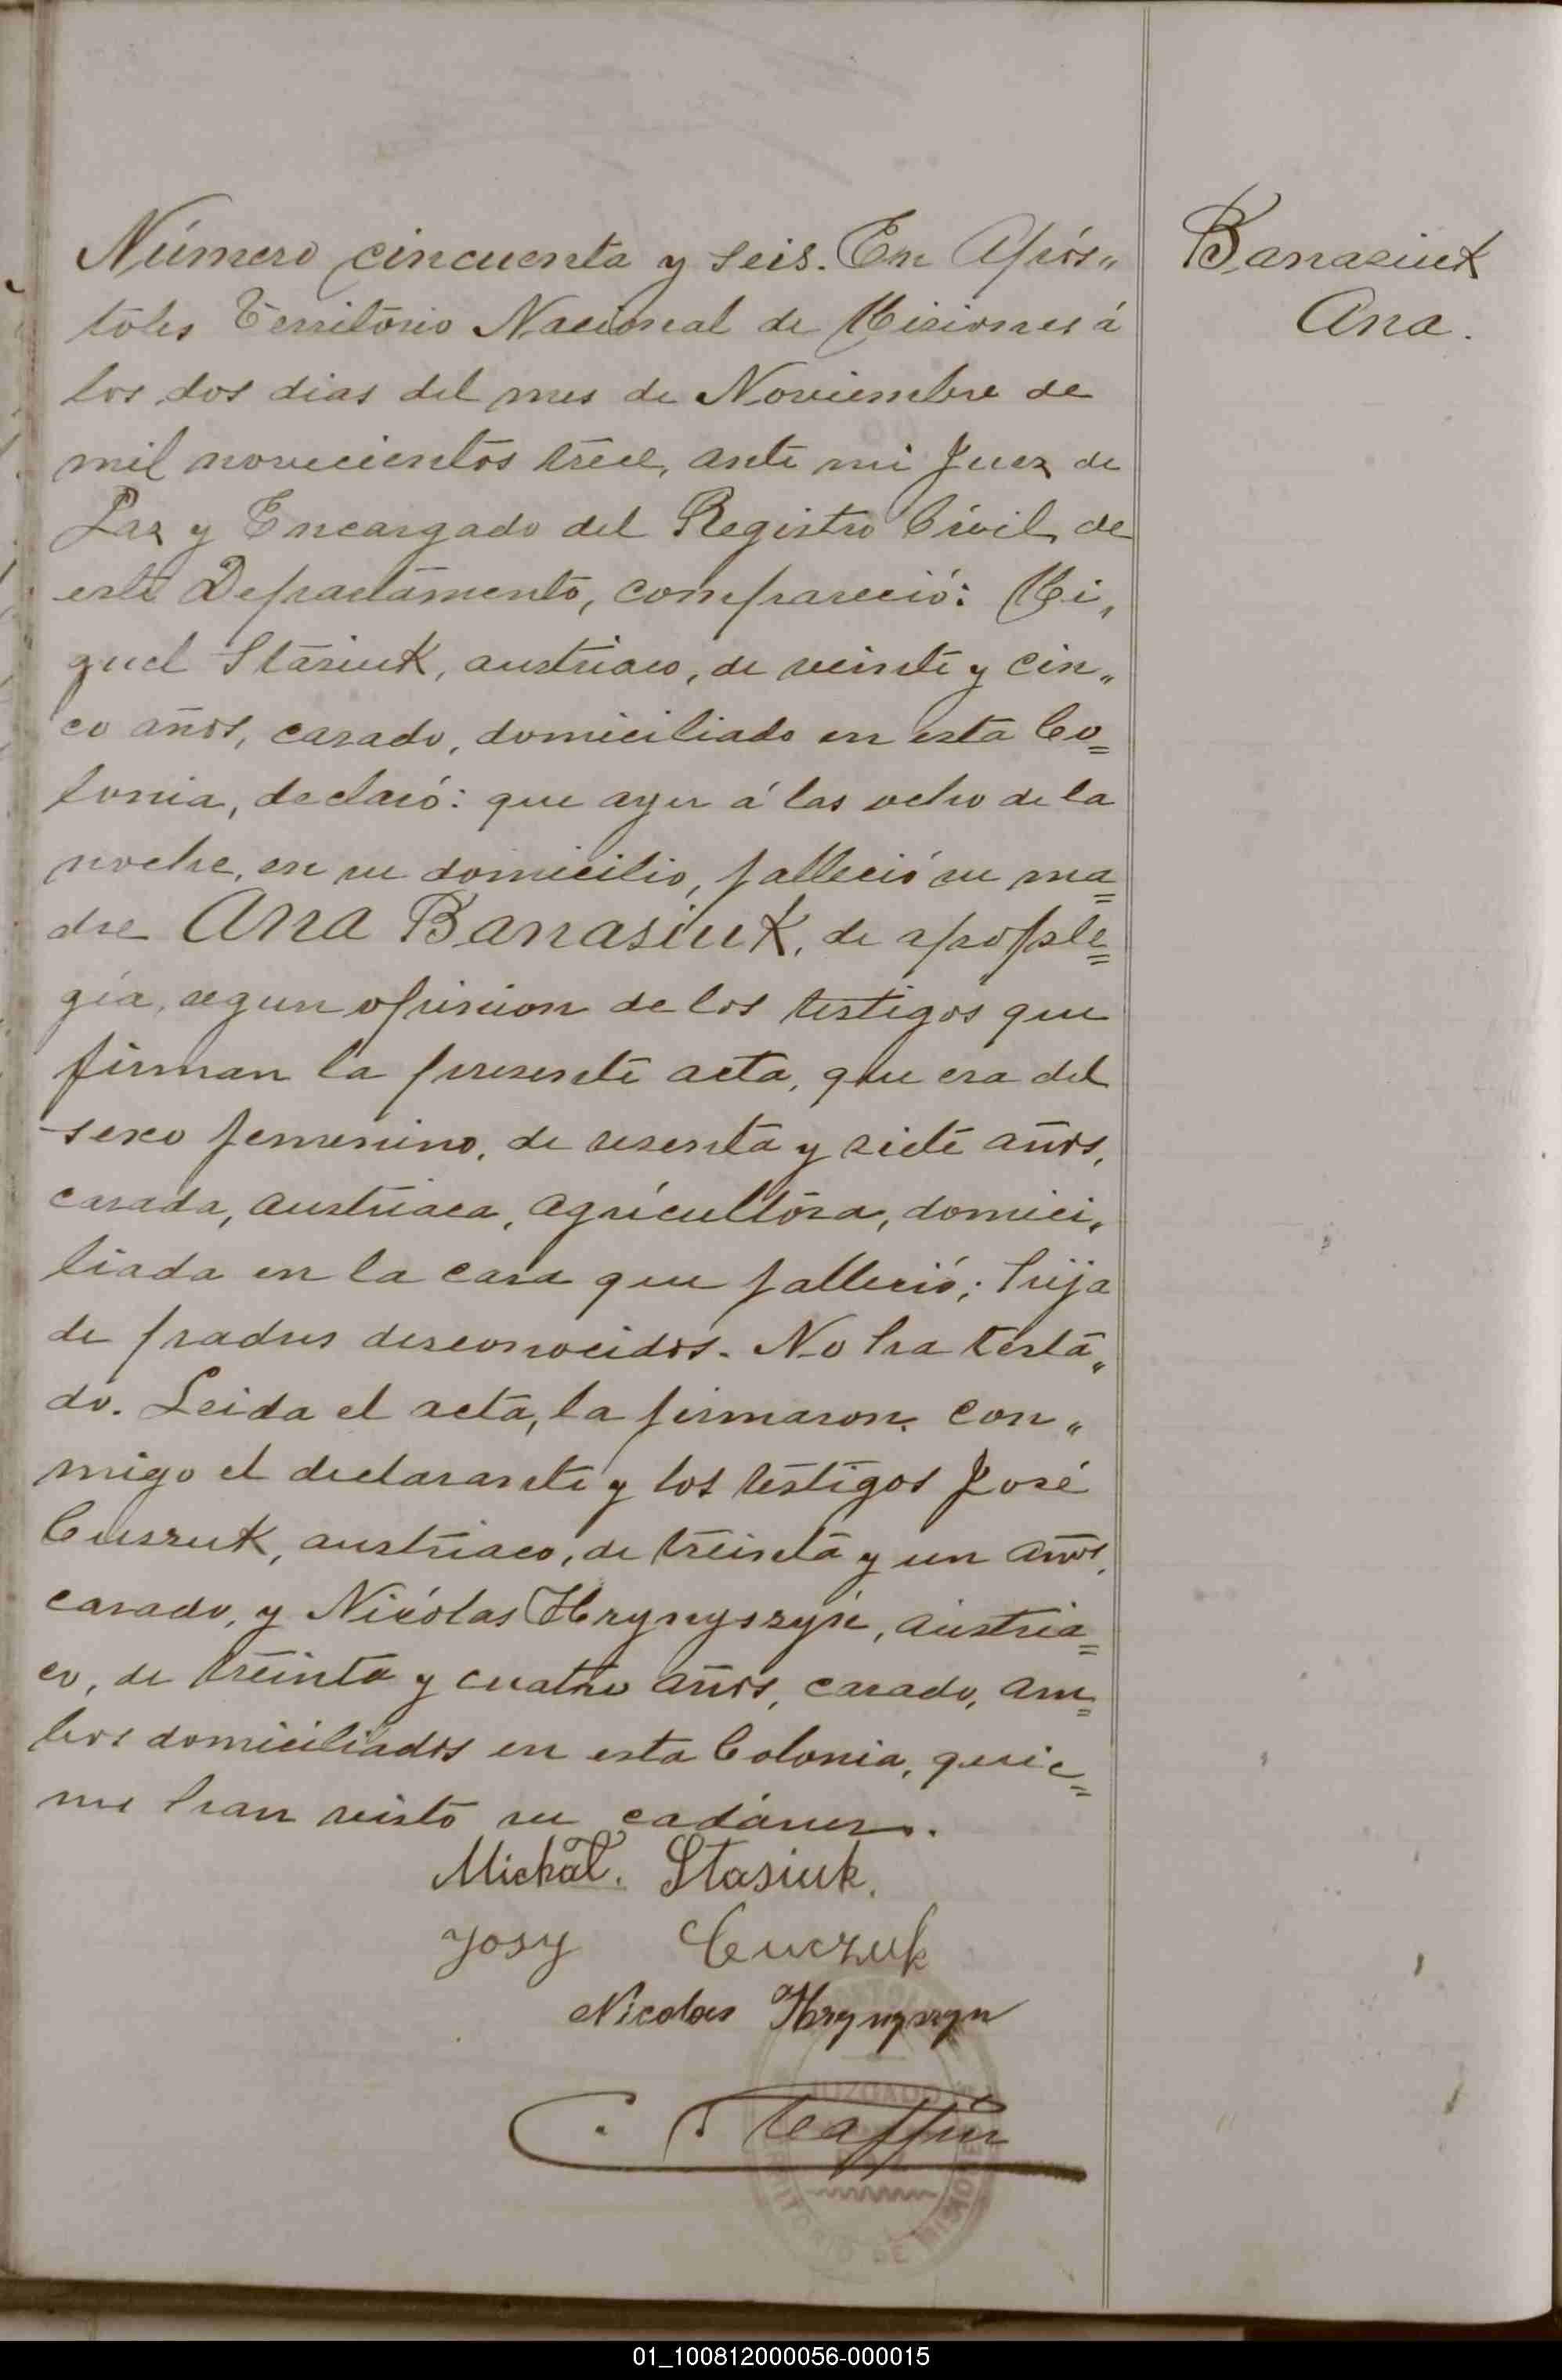 Número cincuenta y seis. En Após„
toles Territorio Nacional de Misiones á
los dos dias del mes de Noviembre de
mil novecientos trece, ante mi Juez de
Paz y Encargado del Registro Civil de
este Departamento, compareció: Mi„
guel Stasiuk, austriaco, de veinte y cin„
co años, casado, domiciliado en esta Co=
lonia, declaró: que ayer á las ocho de la
noche, en su domicilio, falleció su ma=
dre Ana Banasiuk, de apople=
gía, segun opinion de los testigos que
firman la presente acta, que era del
sexo femenino, de sesenta y siete años,
casada, austriaca, agricultora, domici„
liada en la casa que falleció; hija
de padres desconocidos. No ha testa„
do. Leida el acta, la firmaron con„
migo el declarante y los testigos José
Cuszuk, austriaco, de treinta y un años,
casado, y Nicólas Hrynyszyn, austria=
co, de treinta y cuatro años, casado, am=
bos domiciliados en esta Colonia, quie=
nes han visto su cadáver.
Michał. Stasiuk.
Josy Cuczuk
Nicolas Hrynyszyn
JUZGADO
TERRITORIO DE MISIONES
Banasiuk
Ana.
01_100812000056-000015